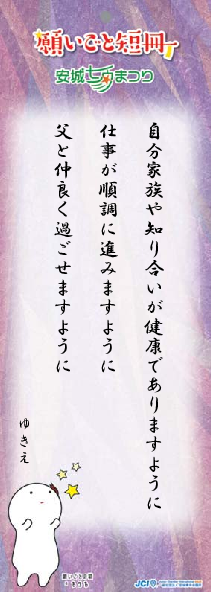 願いごと短冊
安城七夕まつり
自分家族や知り合いが健康でありますように
仕事が順調に進みますように
父と仲良く過ごせますように
ゆきえ
JCI